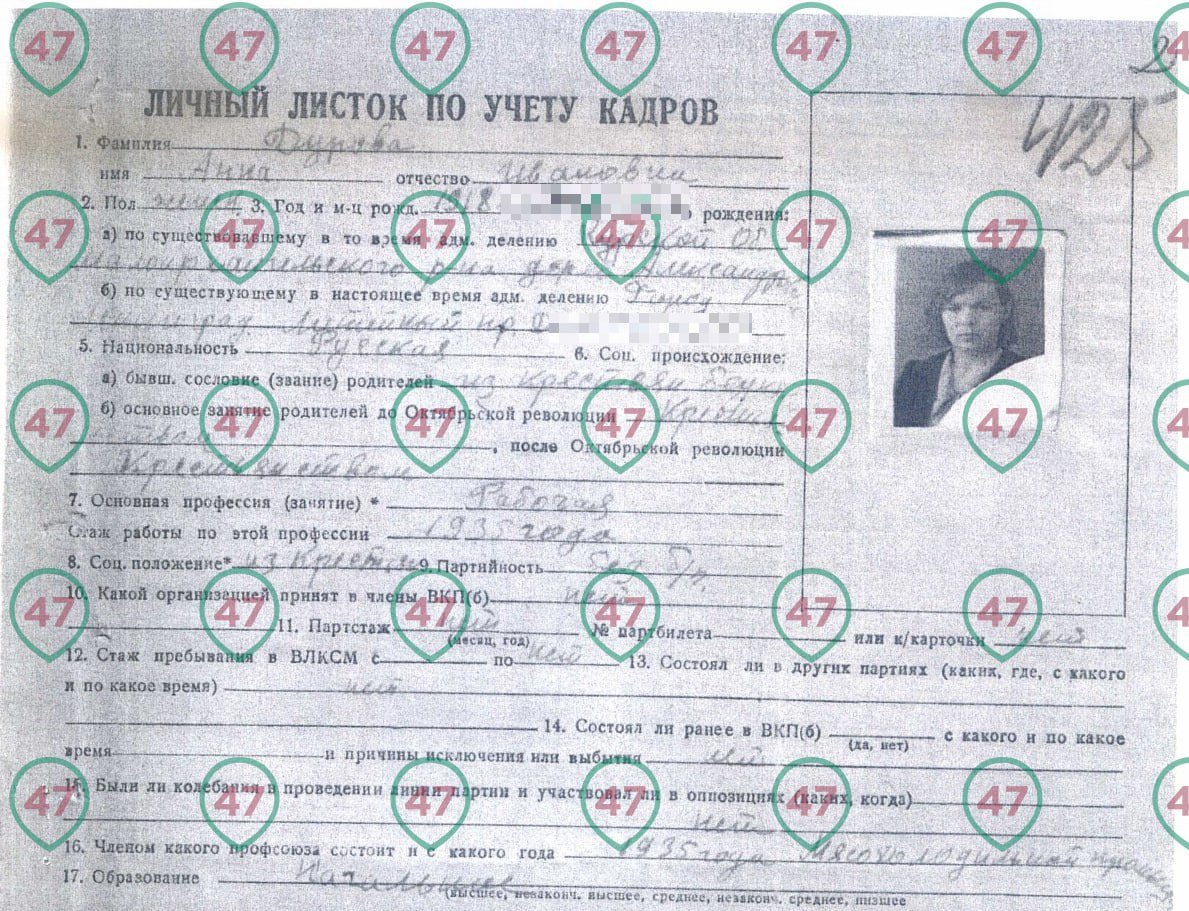 425
ЛИЧНЫЙ ЛИСТОК ПО УЧЕТУ КАДРОВ
1. Фамилия Дурова
имя Анна отчество Ивановна
2. Пол женск 3. Год и м-ц рожд. 1918 рождения:
а) по существовавшему в то время адм. делению Курской Об
Малоархангельского р-на дер. Александр
б) по существующему в настоящее время адм. делению Город
Ленинград Литейный пр
5. Национальность Русская 6. Соц. происхождение:
а) бывш. сословие (звание) родителей из крестьян
б) основное занятие родителей до Октябрьской революции
, после Октябрьской революции
Крестьянством
7. Основная профессия (занятие) * Рабочая
Стаж работы по этой профессии 1935 года
8. Соц. положение* из Крестьян 9. Партийность без п/п.
10. Какой организацией принят в члены ВКП(б) нет
11. Партстаж нет № партбилета или к/карточки нет
(месяц, год)
12. Стаж пребывания в ВЛКСМ с по нет 13. Состоял ли в других партиях (каких, где, с какого
и по какое время) нет
14. Состоял ли ранее в ВКП(б) с какого и по какое
(да, нет)
время и причины исключения или выбытия нет
15. Были ли колебания в проведении линии партии и участвовал ли в оппозициях (каких, когда)
нет
16. Членом какого профсоюза состоит и с какого года 1935 года
17. Образование Начальное
(высшее, незаконч. высшее, среднее, незаконч. среднее, низшее
47